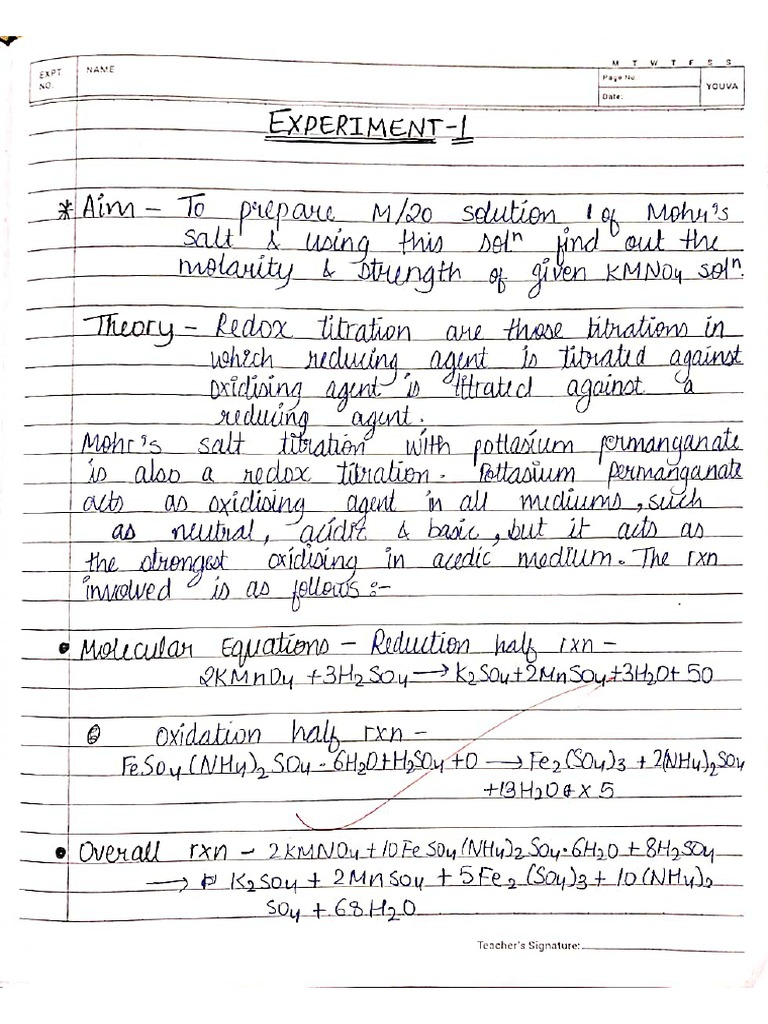 M T W T F S S
EXPT. NO. NAME Page No. Date: YOUVA
EXPERIMENT-1
* Aim - To prepare M/20 solution of Mohr's
salt & using this solⁿ find out the
molarity & strength of given KMNO4 solⁿ.
Theory - Redox titration are those titrations in
which reducing agent is titrated against
oxidising agent is titrated against a
reducing agent.
Mohr's salt titration with pottasium permanganate
is also a redox titration. Pottasium permanganate
acts as oxidising agent in all mediums, such
as neutral, acidic & basic, but it acts as
the strongest oxidising in acedic medium. The rxn
involved is as follows :-
• Molecular Equations - Reduction half rxn -
2KMnO4 + 3H2SO4 → K2SO4 + 2MnSO4 + 3H2O + 5O
Oxidation half rxn -
FeSO4(NH4)2SO4 · 6H2O + H2SO4 + O → Fe2(SO4)3 + 2(NH4)2SO4
+ 13H2O x 5
• Overall rxn - 2KMNO4 + 10FeSO4(NH4)2SO4·6H2O + 8H2SO4
→ K2SO4 + 2MnSO4 + 5Fe2(SO4)3 + 10(NH4)2
SO4 + 68H2O
Teacher's Signature: